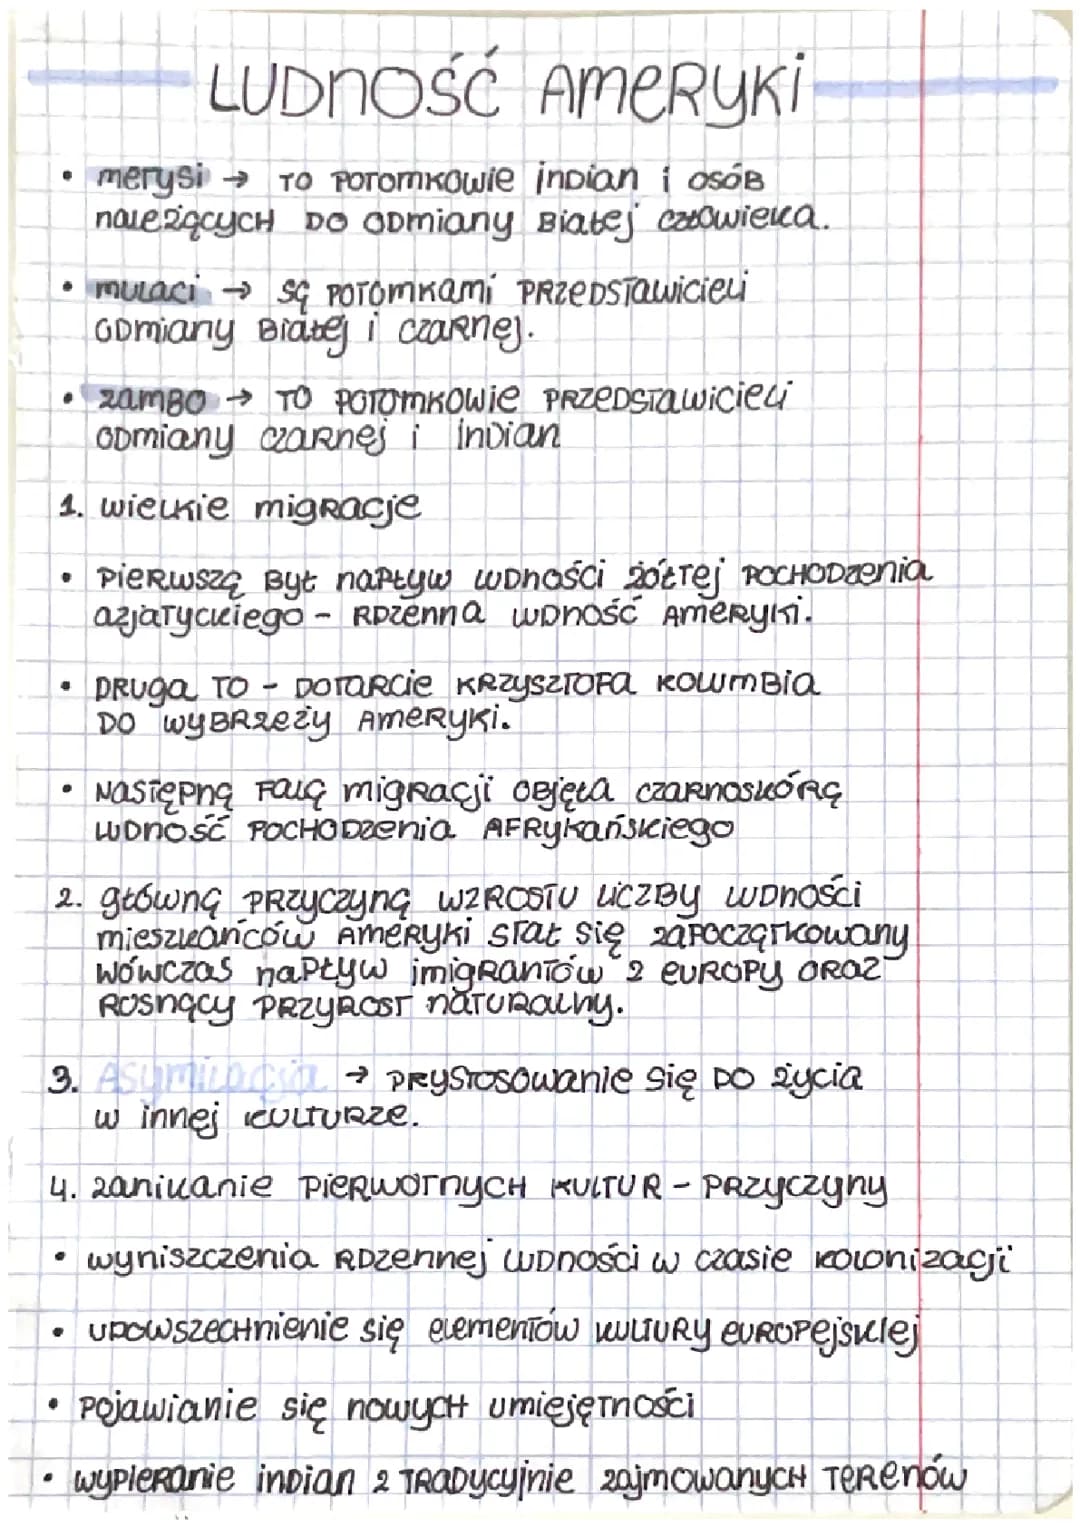 LUDNOŚĆ AMERYKI
• metysi → TO POTOMKOWIE INDIAN i OSÓB
należących DO ODmiany Białej człowieka.
• mulaci → są POTOMKAMI PRZEDSTAWICIELI
ODmiany Białej i czarnej.
• zamBO → TO POTOMKOWIE PRZEDSTAWICIELI
ODmiany czarnej i INDIAN
1. wielkie migracje
• Pierwszą Był napływ ludności żółtej POCHODZENIA
azjatyckiego - RDZENNA LUDNOŚĆ AMERYKI.
• DRUGA TO - DOTARCIE KRZYSZTOFA KOLUMBIA
DO WYBRZEŻY AMERYKI.
• NASTĘPNĄ FALĄ migracji objęła czarnoskórą
LUDNOŚĆ POCHODZENIA AFRYKAŃSKIEGO
2. główną PRZYCZYNĄ WZROSTU LICZBY LUDNOŚCI
mieszkańców AMERYKI STAŁ SIĘ ZAPOCZĄTKOWANY
WÓWCZAS napływ imigrantów z EUROPY ORAZ
ROSNĄCY PRZYROST NATURALNY.
3. Asymilacja → PRYSTOSOWANIE SIĘ DO życia
w innej KULTURZE.
4. zanikanie PIERWOTNYCH KULTUR - PRZYCZYNY
• wyniszczenia RDZENNEJ LUDNOŚCI w czasie kolonizacji
• UPOWSZECHNIENIE SIĘ ELEMENTÓW KULTURY EUROPEJSKIEJ
• Pojawianie się nowych umiejętności
• wypieranie INDIAN z TRADYCYJNIE zajmowanych TERENÓW